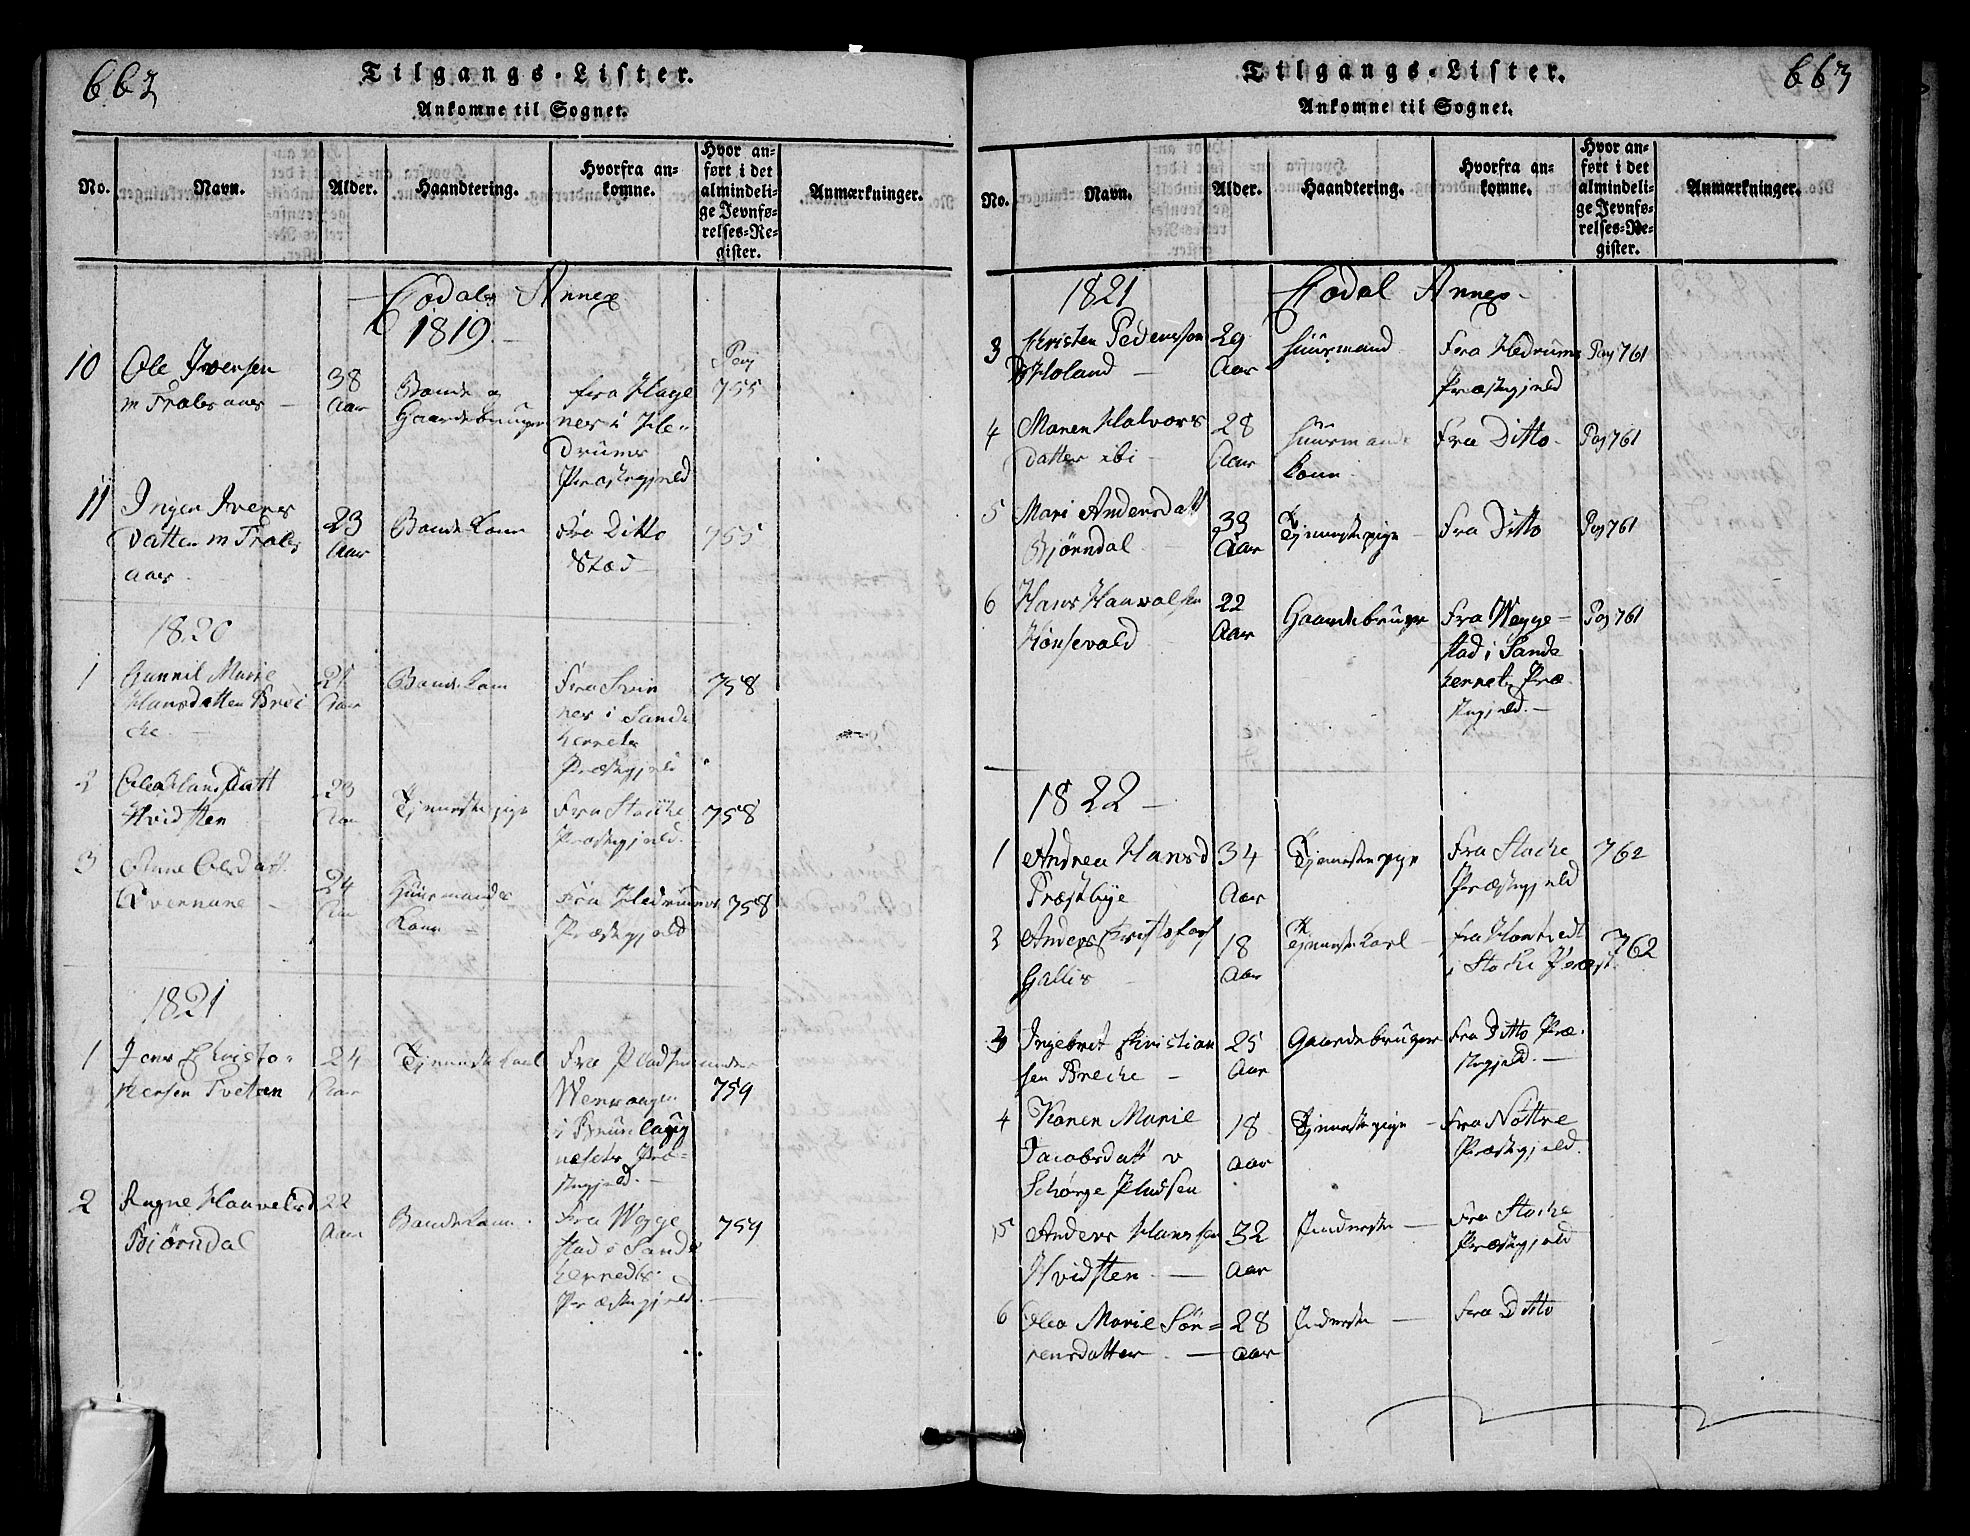 662
Tilgangs-Lister.
Ankomne til Sognet.
No.
Navn.
Alder.
Haandtering.
Hvorfra an-
komne.
Hvor an-
ført i det
almindeli-
ge Jevnfø-
relses-Re-
gister.
Anmærkninger.
Annex
1819.
10
Ole Iversen
38
Aar
Bonde og
Gaardebruger
fra Hage
nes i He-
drums
Præstegjeld
Pag
755
11
Inger Ivers
Datter
aas
23
Aar
Bonde Kone
fra Ditto
Stæd
755
1820
1
Gunnil Marie
Hansdatter
21
Aar
Bonde Kone
Fra
nes i Sande
herrets
Præstegjeld
758
2
Olea Hansdatt
Hvidsten
23
Aar
Tjenestepige
Fra Stocke
Præstegjeld.
758
3
Anne Olesdatt
24
Aar
Huusmands
Kone
Fra Hedrums
Præstegjeld
758
1821
1
Jens Christo-
phersen Tveten
24
Aar
Tjenestekarl
Fra Pladsen under
i Brunlaug
næsets Præ-
stegjeld.
759
2
Haavelsd
Bjørndal
22
Aar
Bonde Kone
Fra Wegge
stad i Sande
herreds
Præstegjeld.
759
663
Tilgangs-Lister.
Ankomne til Sognet.
No.
Navn.
Alder.
Haandtering.
Hvorfra an-
komne.
Hvor an-
ført i det
almindeli-
ge Jevnfø-
relses-Re-
gister.
Anmærkninger.
1821
Annex
3
Kristen Pedersson
29
Aar
Huusmand
Fra Hedrums
Præstegjeld
Pag 761
4
Maren Halvors
datter ibi
28
Aar
Huusmands
Kone
Fra Ditto
Pag 761
5
Mari Andersdatt
Bjørndal
33
Aar
Tjenestepige
Fra Ditto
Pag 761
6
Hans Haavalsen
Hønsevald
22
Aar
Gaardebruger
Fra Wegge-
stad i Sande
herrets Præ
stegjeld.
Pag 761
1822
1
Andrea Hansd
Præstbye
34
Aar
Tjenestepige
Fra Stocke
Præstegjeld
762
2
Anders Kristofers
Gallis
18
Aar
Tjenestekarl
fra
i Stocke Præst.
762
3
Ingebret Kristian
sen Breche
25
Aar
Gaardebruger
Fra Ditto Præ-
stegjeld.
4
Karen Marie
Jacobsdatt v
Pladsen
18
aar
Tjenestepige
Fra Nøttre
Præstegjeld.
5
Anders Hanssen
Hvidsten
32
Aar
Inderste
Fra Stocke
Præstegjeld
6
Olea Marie Sør-
rensdatter
28
aar
Inderste
Fra Ditto